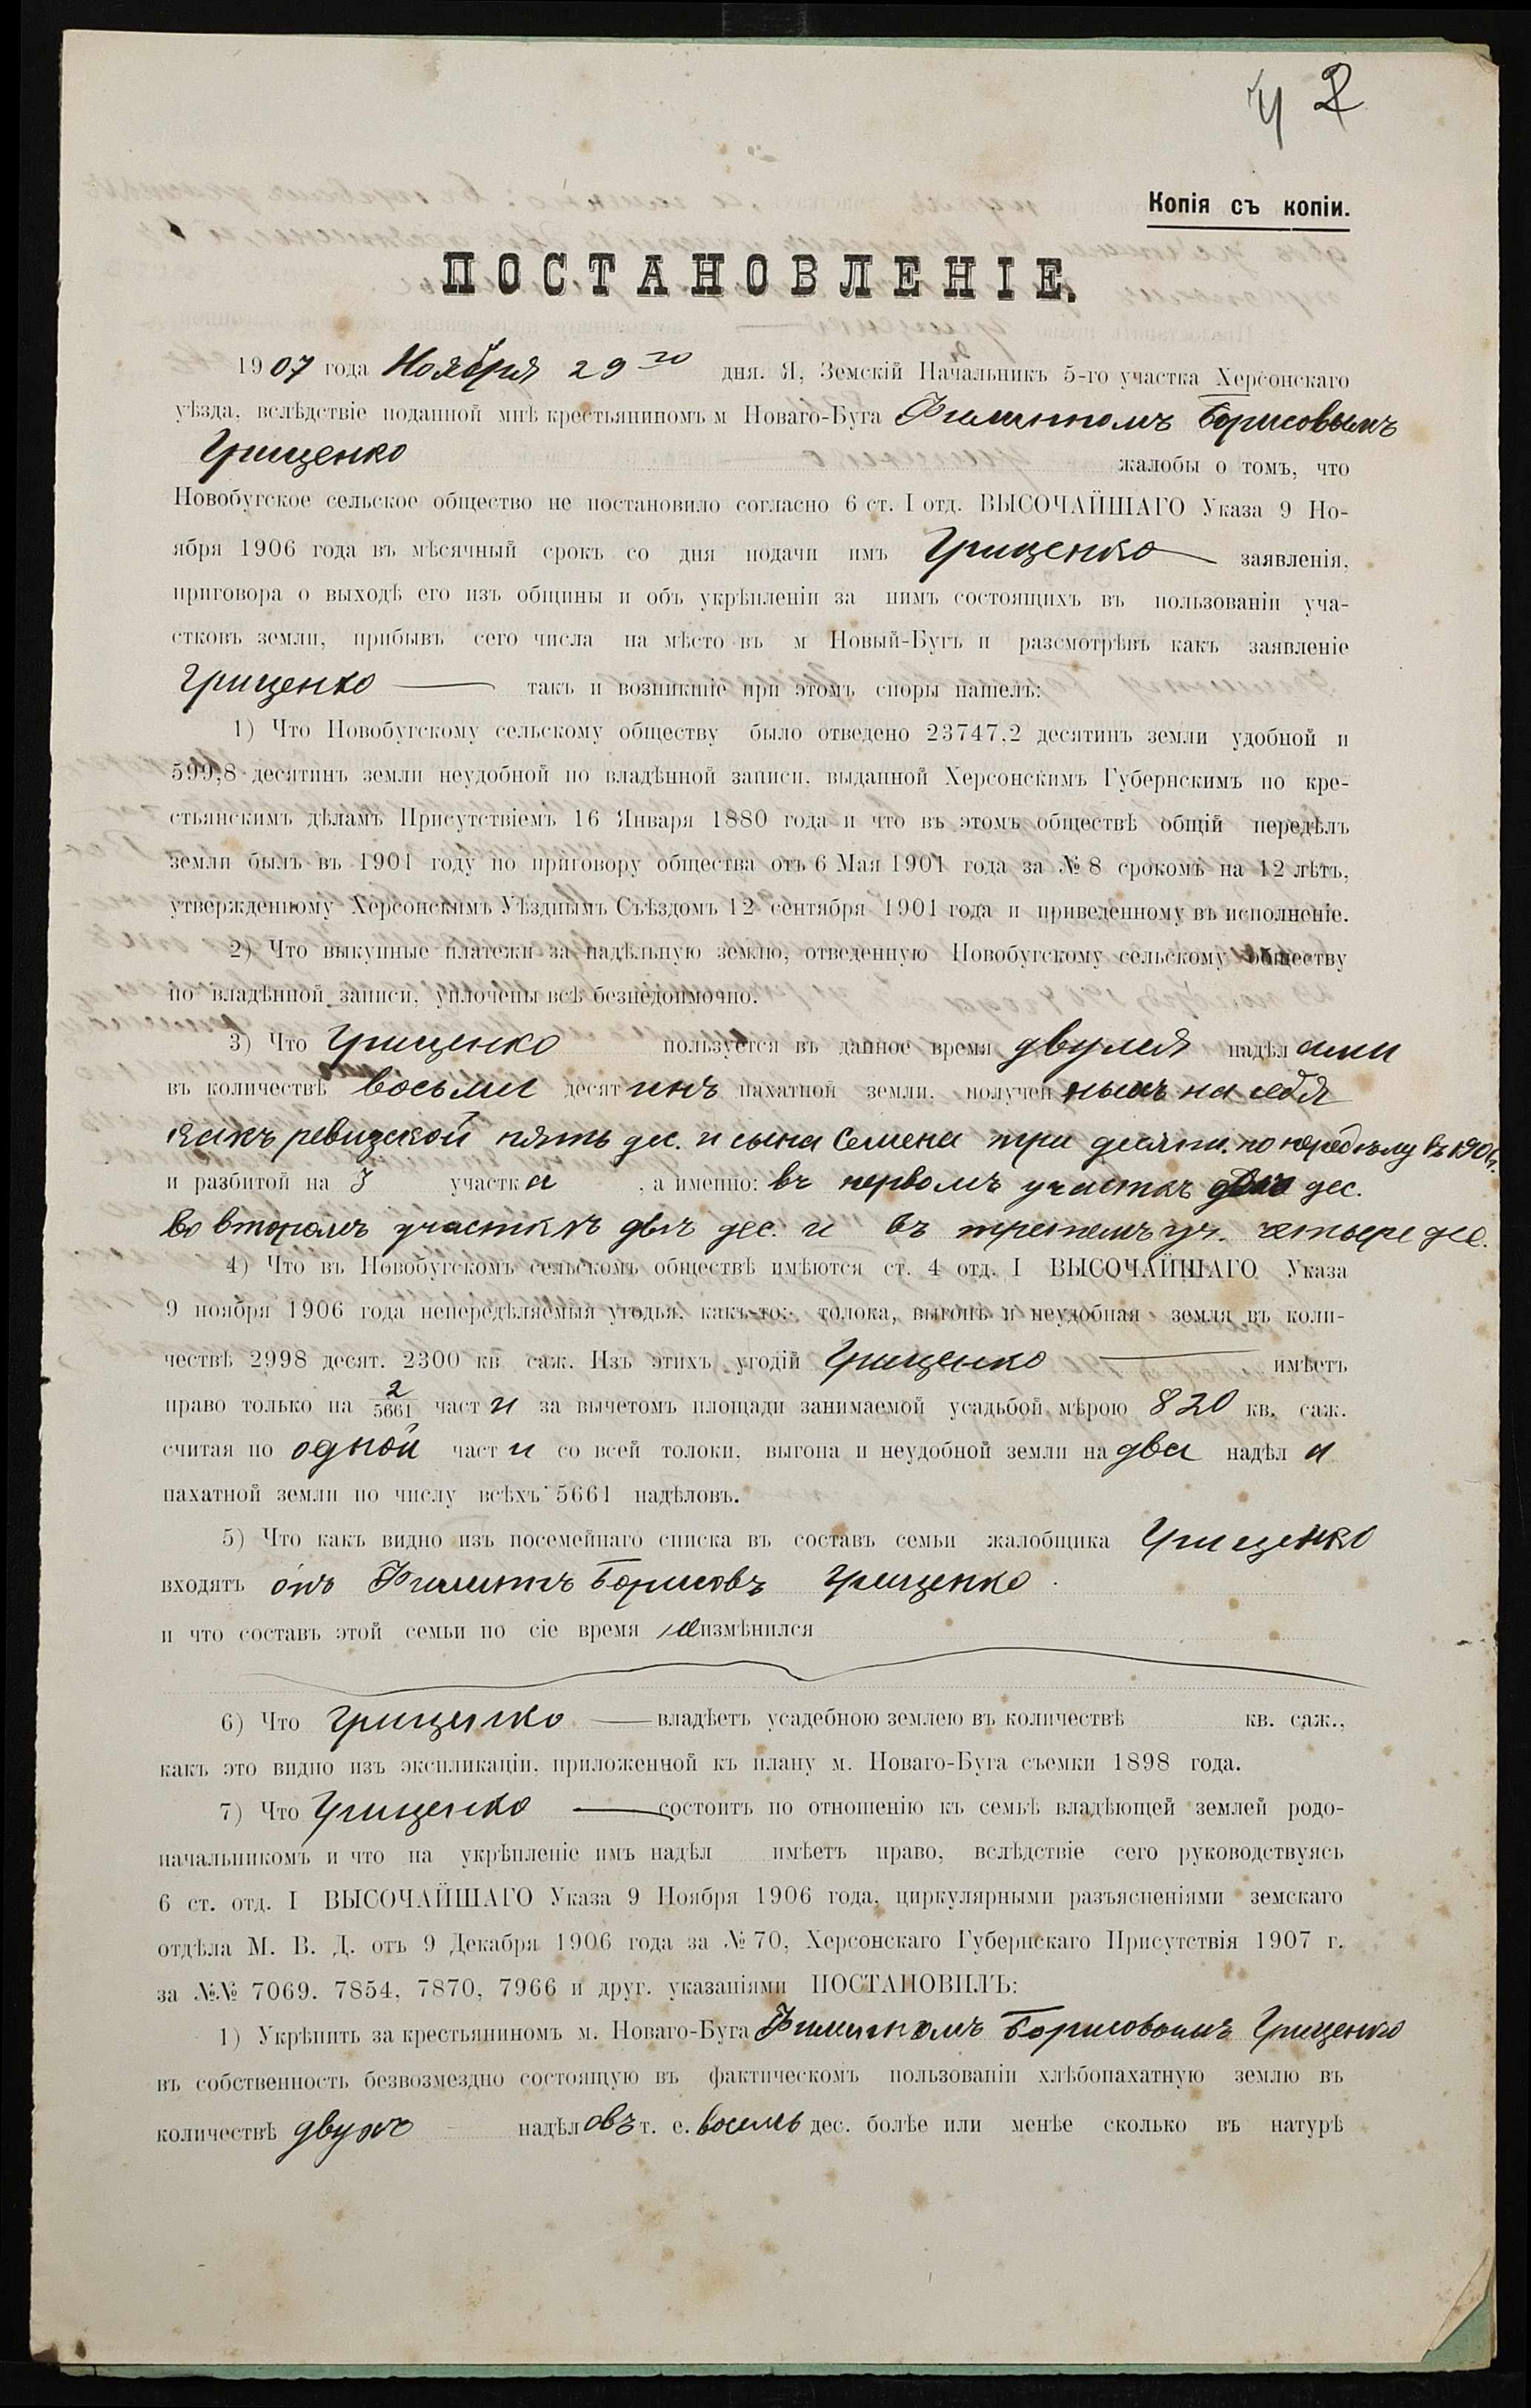 4 2
Копія съ копіи.
ПОСТАНОВЛЕНІЕ.
1907 года Ноября 29го дня. Я, Земскій Начальникъ 5-го участка Херсонскаго
уѣзда, вслѣдствіе поданной мнѣ крестьяниномъ м Новаго-Буга Филиппомъ Борисовымъ
Грищенко жалобы о томъ, что
Новобугское сельское общество не постановило согласно 6 ст. I отд. ВЫСОЧАЙШАГО Указа 9 Но-
ября 1906 года въ мѣсячный срокъ со дня подачи имъ Грищенко заявленія,
приговора о выходѣ его изъ общины и объ укрѣпленіи за нимъ состоящихъ въ пользованіи уча-
стковъ земли, прибывъ сего числа на мѣсто въ м Новый-Бугъ и разсмотрѣвъ какъ заявленіе
Грищенко такъ и возникшіе при этомъ споры нашелъ:
1) Что Новобугскому сельскому обществу было отведено 23747,2 десятинъ земли удобной и
599,8 десятинъ земли неудобной по владѣнной записи, выданной Херсонскимъ Губернскимъ по кре-
стьянскимъ дѣламъ Присутствіемъ 16 Января 1880 года и что въ этомъ обществѣ общій передѣлъ
земли былъ въ 1901 году по приговору общества отъ 6 Мая 1901 года за № 8 срокомъ на 12 лѣтъ,
утвержденному Херсонскимъ Уѣзднымъ Съѣздомъ 12 сентября 1901 года и приведенному въ исполненіе.
2) Что выкупные платежи за надѣльную землю, отведенную Новобугскому сельскому обществу
по владѣнной записи, уплочены всѣ безнедоимочно.
3) Что Грищенко пользуется въ данное время двумя надѣлами
въ количествѣ восьми десятинъ пахатной земли, полученныхъ на себя
какъ ревизской пять дес. и сына Семена три десяти. по передѣлу въ 1901г.
и разбитой на 3 участка, а именно: въ первомъ участкѣ двѣ дес.
во второмъ участкѣ двѣ дес. и въ третьемъ уч. четыре дес.
4) Что въ Новобугскомъ сельскомъ обществѣ имѣются ст. 4 отд. I ВЫСОЧАЙШАГО Указа
9 ноября 1906 года непередѣляемыя угодья, какъ-то: толока, выгонъ и неудобная земля въ коли-
чествѣ 2998 десят. 2300 кв. саж. Изъ этихъ угодій Грищенко имѣетъ
право только на 2/5661 части за вычетомъ площади занимаемой усадьбой мѣрою 820 кв. саж.
считая по одной части со всей толоки, выгона и неудобной земли на два надѣла
пахатной земли по числу всѣхъ 5661 надѣловъ.
5) Что какъ видно изъ посемейнаго списка въ составъ семьи жалобщика Грищенко
входятъ онъ Филиппъ Борисовъ Грищенко.
и что составъ этой семьи по сіе время не измѣнился
6) Что Грищенко владѣетъ усадебною землею въ количествѣ кв. саж.,
какъ это видно изъ экспликаціи, приложенной къ плану м. Новаго-Буга съемки 1898 года.
7) Что Грищенко состоитъ по отношенію къ семьѣ владѣющей землей родо-
начальникомъ и что на укрѣпленіе имъ надѣл имѣетъ право, вслѣдствіе сего руководствуясь
6 ст. отд. I ВЫСОЧАЙШАГО Указа 9 Ноября 1906 года, циркулярными разъясненіями земскаго
отдѣла М. В. Д. отъ 9 Декабря 1906 года за № 70, Херсонскаго Губернскаго Присутствія 1907 г.
за №№ 7069. 7854, 7870, 7966 и друг. указаніями ПОСТАНОВИЛЪ:
1) Укрѣпить за крестьяниномъ м. Новаго-Буга Филиппомъ Борисовымъ Грищенко
въ собственность безвозмездно состоящую въ фактическомъ пользованіи хлѣбопахатную землю въ
количествѣ двухъ надѣловъ т. е. восемь дес. болѣе или менѣе сколько въ натурѣ